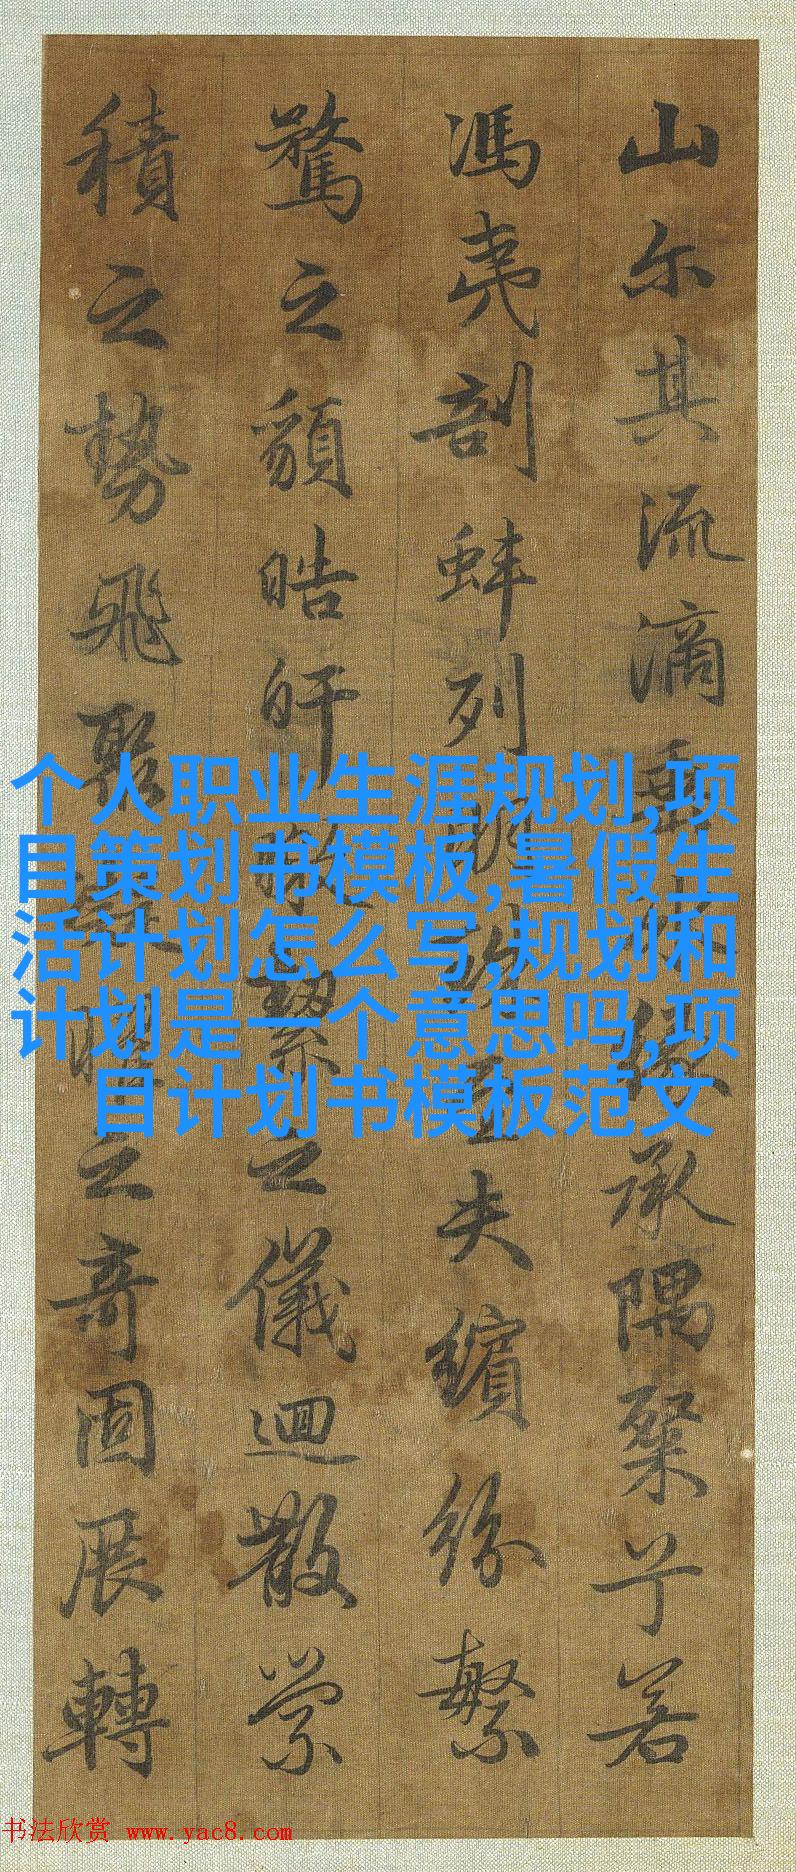 山尔其流滴垂冰缘承隅粲兮若
馮夷剖蚌列明珠至夫繽紛繁
騖之貌皓旰皦潔之儀迴散縈
積之勢飛聚凝曜之奇固展轉
个人职业生涯规划,项
目策划书模板,暑假生
活计划怎么写,规划和
计划是一个意思吗,项
目计划书模板范文
书法欣赏 www.yac8.com